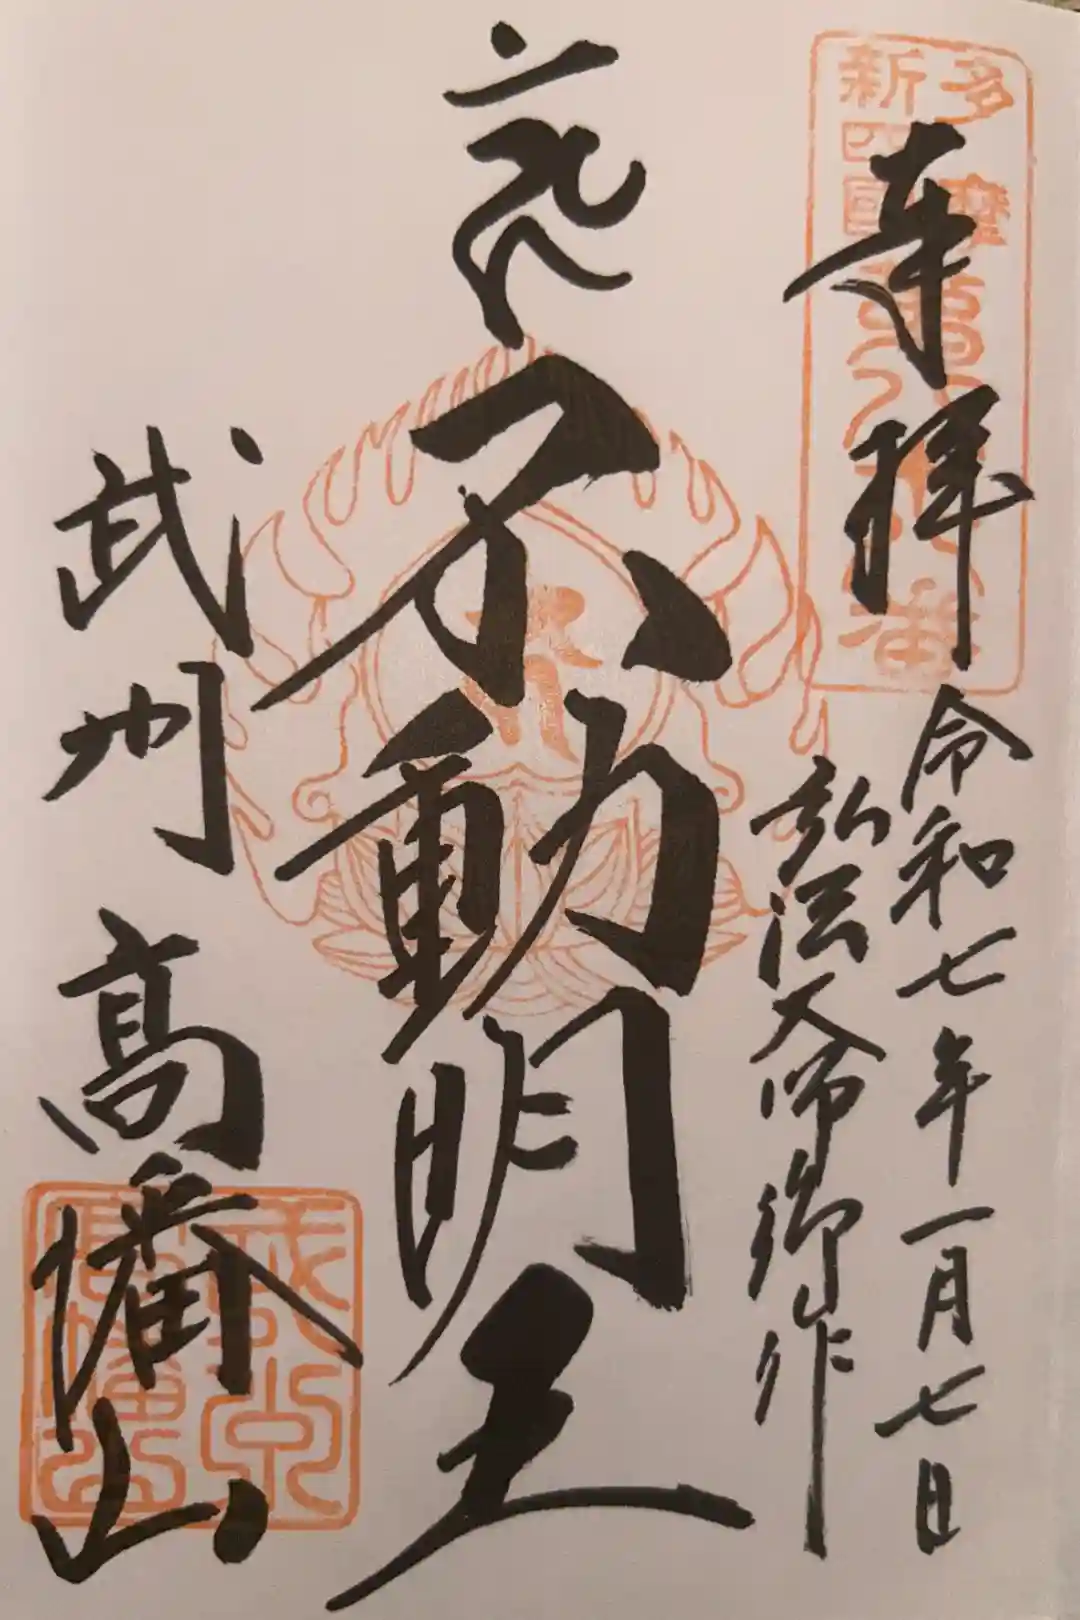 奉拝
令和七年一月七日
弘法大師御作
不動明王
武州
高幡山
多摩
新四國
第八十八番